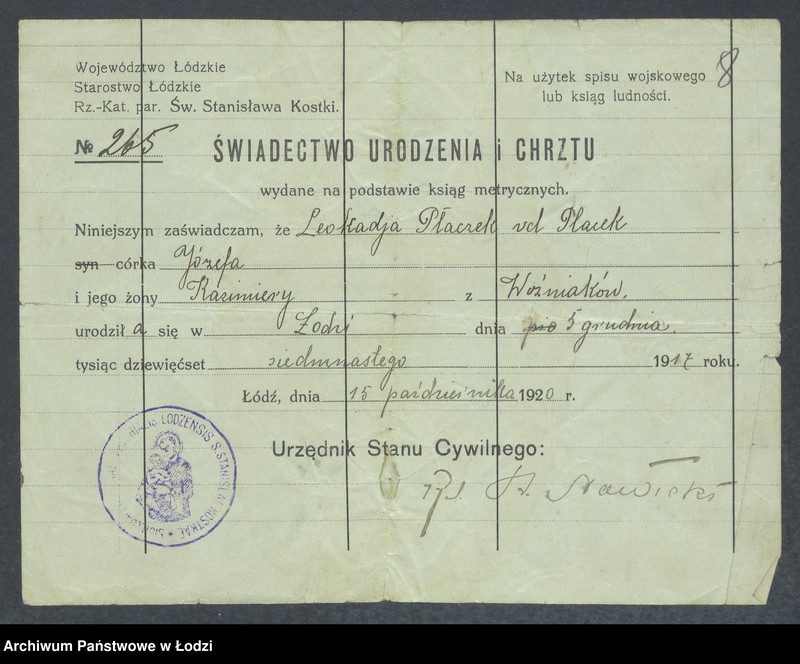 Województwo Łódzkie
Starostwo Łódzkie
Rz.-Kat. par. Św. Stanisława Kostki.
Na użytek spisu wojskowego
lub ksiąg ludności.
8
№ 265
ŚWIADECTWO URODZENIA i CHRZTU
wydane na podstawie ksiąg metrycznych.
Niniejszym zaświadczam, że Leokadja Płaczek vel Placek
syn córka Józefa
i jego żony Kazimiery z Woźniaków.
urodził a się w Łodzi dnia 5 grudnia.
tysiąc dziewięćset siedmnastego 1917 roku.
Łódź, dnia 15 października 1920 r.
Urzędnik Stanu Cywilnego:
Nawicki
LODZENSIS S. STANISLAI KOSTKAE
Archiwum Państwowe w Łodzi